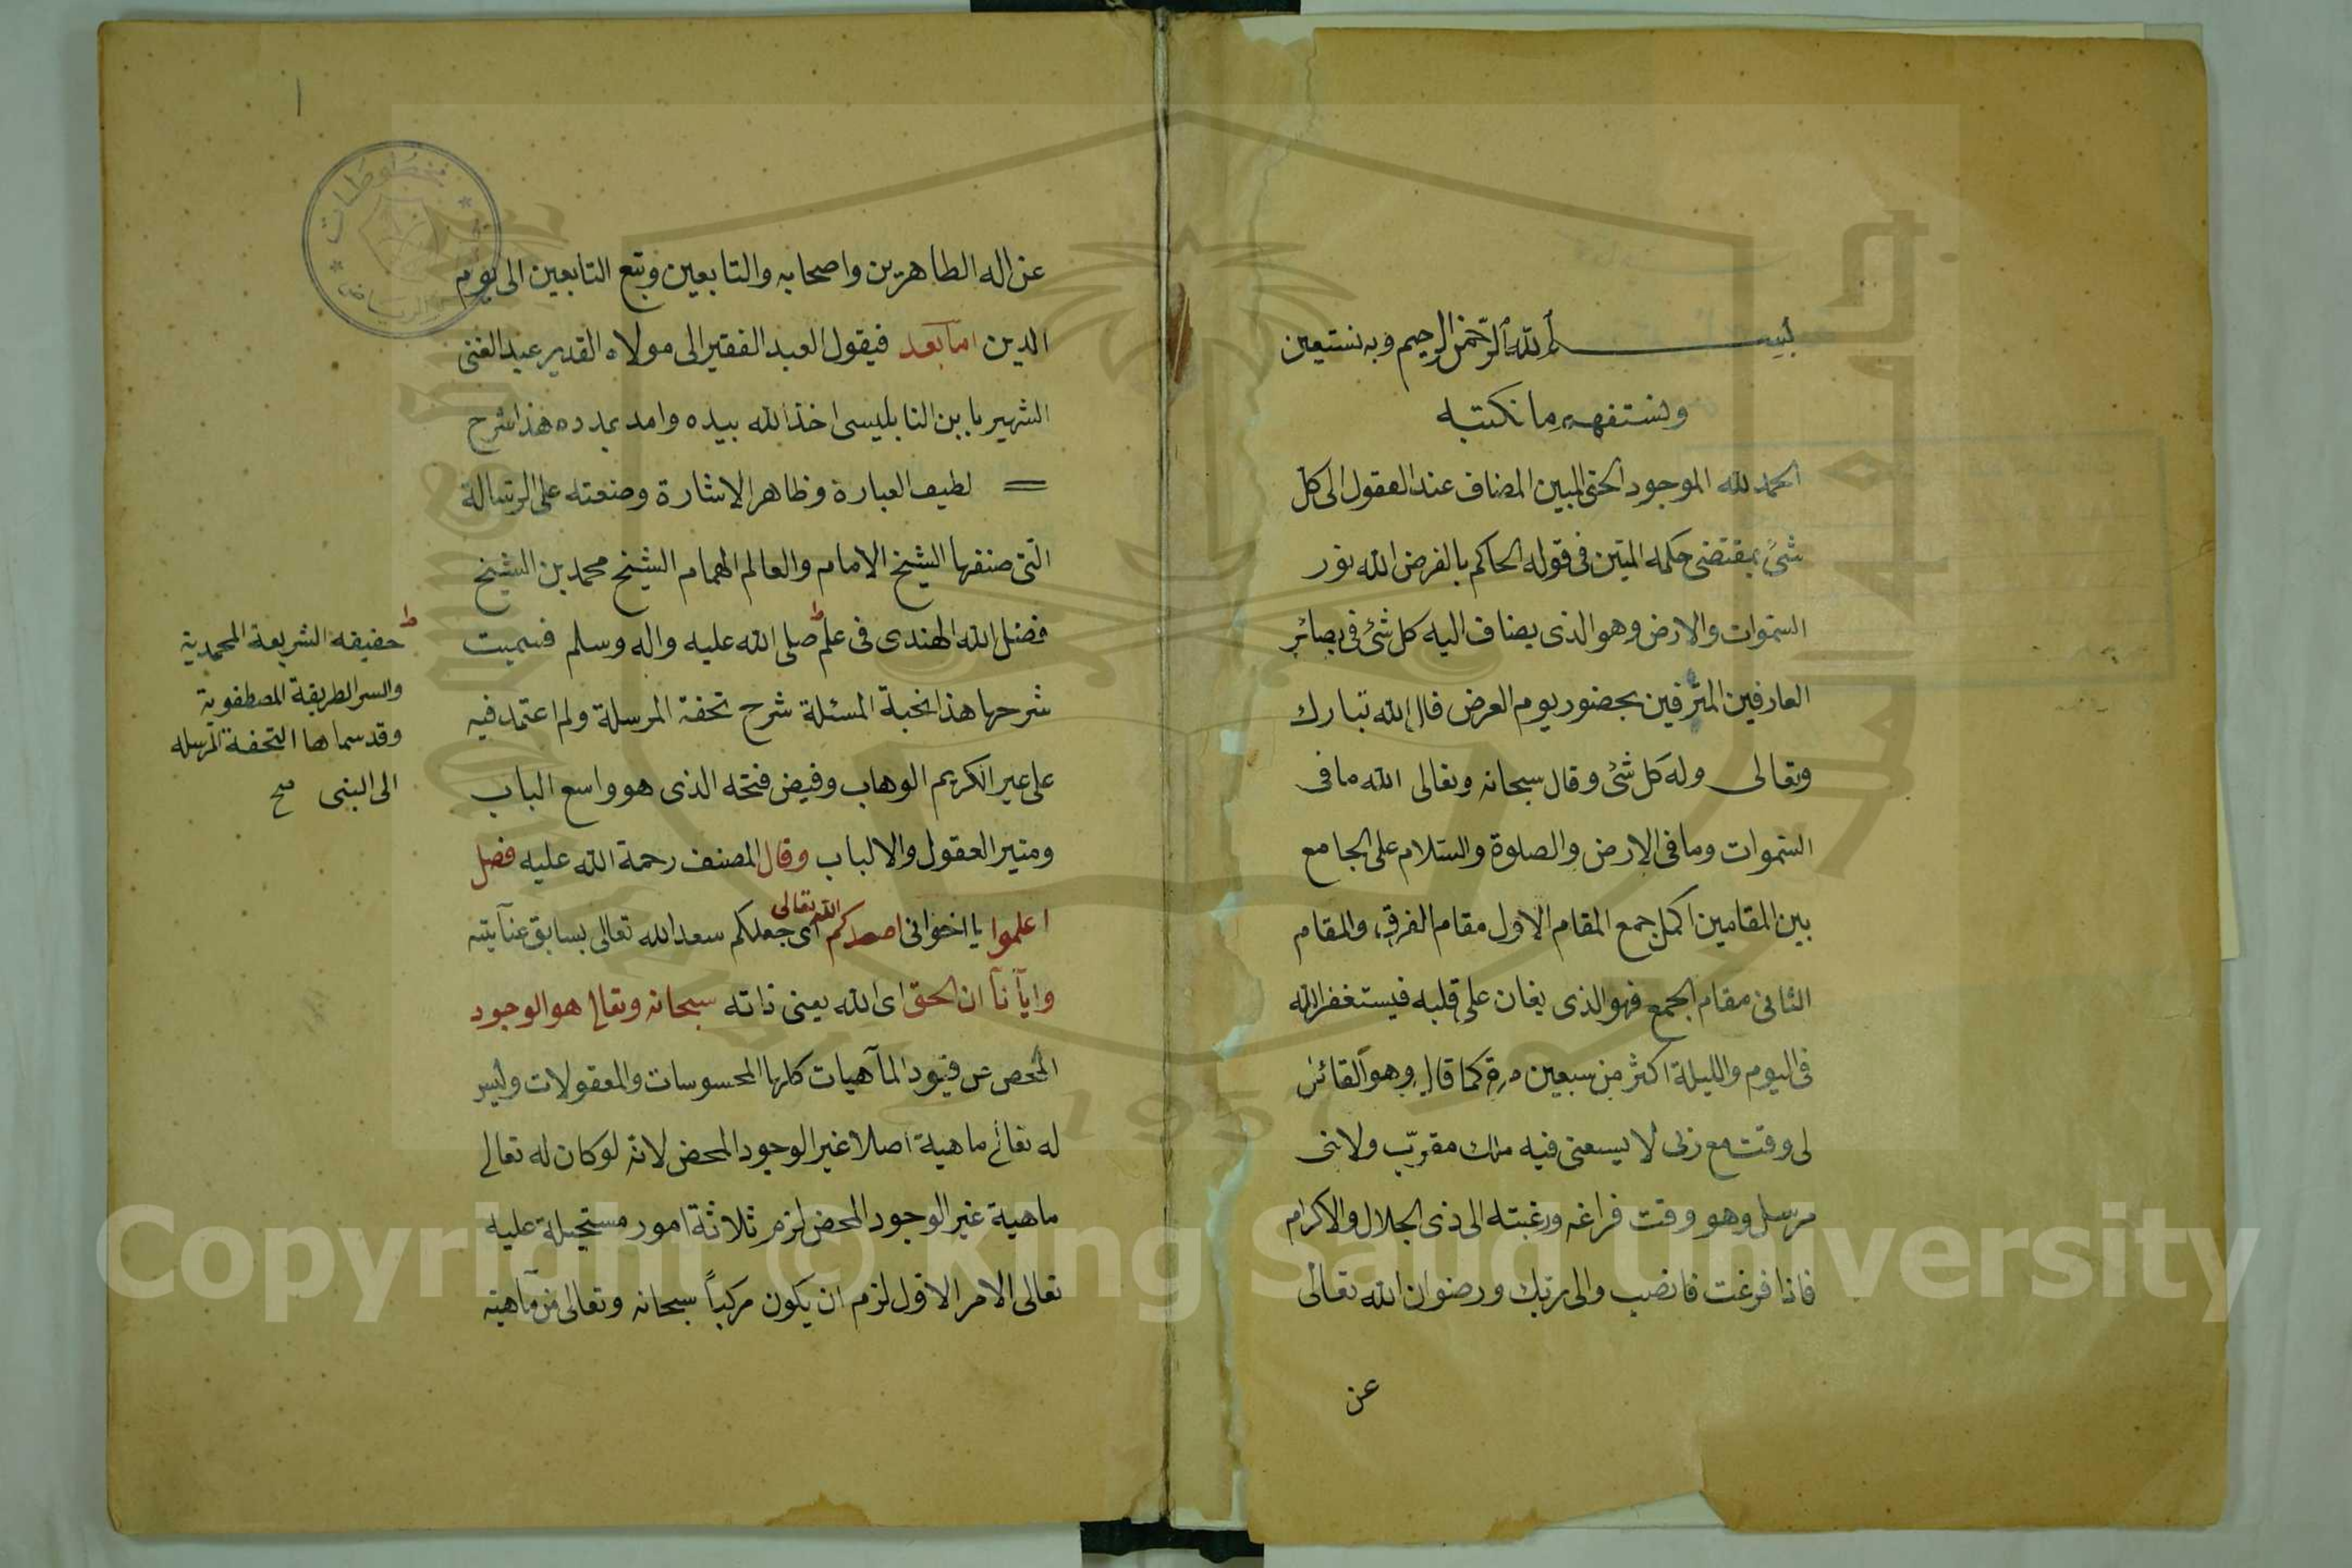 بسم الله الرحمن الرحيم وبه نستعين
ونستفهم ما نكتبه
الحمد لله الموجود الحق المبين المضاف عند العقول الى كل
شئ بمقتضى حكمه المتين فى قوله الحاكم بالفرض الله نور
السموات والارض وهو الذى يضاف اليه كل شئ فى بصائر
العارفين بحضور يوم العرض قال الله تبارك
وتعالى وله كل شئ وقال سبحانه وتعالى الله ما فى
السموات وما فى الارض والصلوة والسلام على الجامع
بين المقامين اكمل جمع المقام الاول مقام الفرق والمقام
الثانى مقام الجمع فهو الذى يغان على قلبه فيستغفر الله
فى اليوم والليلة اكثر من سبعين مرة كما قال وهو القائل
لى وقت مع ربى لا يسعنى فيه ملك مقرّب ولا نبى
مرسل وهو وقت فراغه ورغبته الى ذى الجلال والاكرام
فاذا فرغت فانصب والى ربك ورضوان الله تعالى
عن
عن اله الطاهرين واصحابه والتابعين وتبع التابعين الى يوم
الدين اما بعد فيقول العبد الفقير الى مولاه القدير عبد الغنى
الشهير بابن النابليسى اخذ الله بيده وامد بمدده هذا شرح
لطيف العبارة وظاهر الاشارة وضعته على الرسالة
التى صنفها الشيخ الامام والعالم الهمام الشيخ محمد بن الشيخ
فضل الله الهندى فى علم صلى الله عليه واله وسلم فسميت
شرحها هذا نخبة المسئلة شرح تحفة المرسلة ولم اعتمد فيه
على غير الكريم الوهاب وفيض فتحه الذى هو واسع الباب
ومنير العقول والالباب وقال المصنف رحمة الله عليه فصل
اعلموا يا اخوانى اسعدكم الله تعالى اى جعلكم سعد الله تعالى بسابق عنآيته
وايآنآ ان الحق اى الله يعنى ذاته سبحانه وتعالى هو الوجود
المحض عن قيود المآهيات كلها المحسوسات والمعقولات وليس
له تعالى ماهية اصلا غير الوجود المحض لانه لو كان له تعالى
ماهية غير الوجود المحض لزم ثلاثة امور مستحيلة عليه
تعالى الامر الاول لزم ان يكون مركباً سبحانه وتعالى من مآهية
حقيقه الشريعة المحمدية
والسر الطريقة المصطفوية
وقد سماها التحفة المرسله
الى النبى صح
مخطوطات
١
Copyright © King Saud University
1957